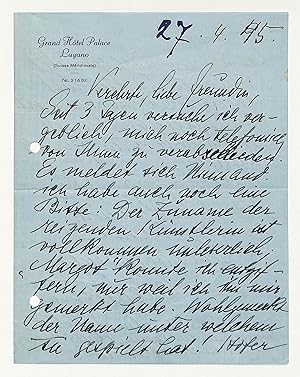 Grand Hôtel Palace
Lugano
(Suisse Méridionale)
Tél. 2 16 02
27. 4. 45.
Verehrte, liebe Freundin,
Seit 3 Tagen versuche ich ver-
geblich, mich noch telefonisch
von Ihnen zu verabschieden.
Es meldet sich Niemand
ich habe auch noch eine
Bitte: Der Zuname der
reizenden Künstlerin ist
vollkommen unleserlich
"Margot" konnte ich entzif-
fern, nur weil ich ihn mir
gemerkt habe. Wohlgemerkt
der Name unter welchem
sie gespielt hat!